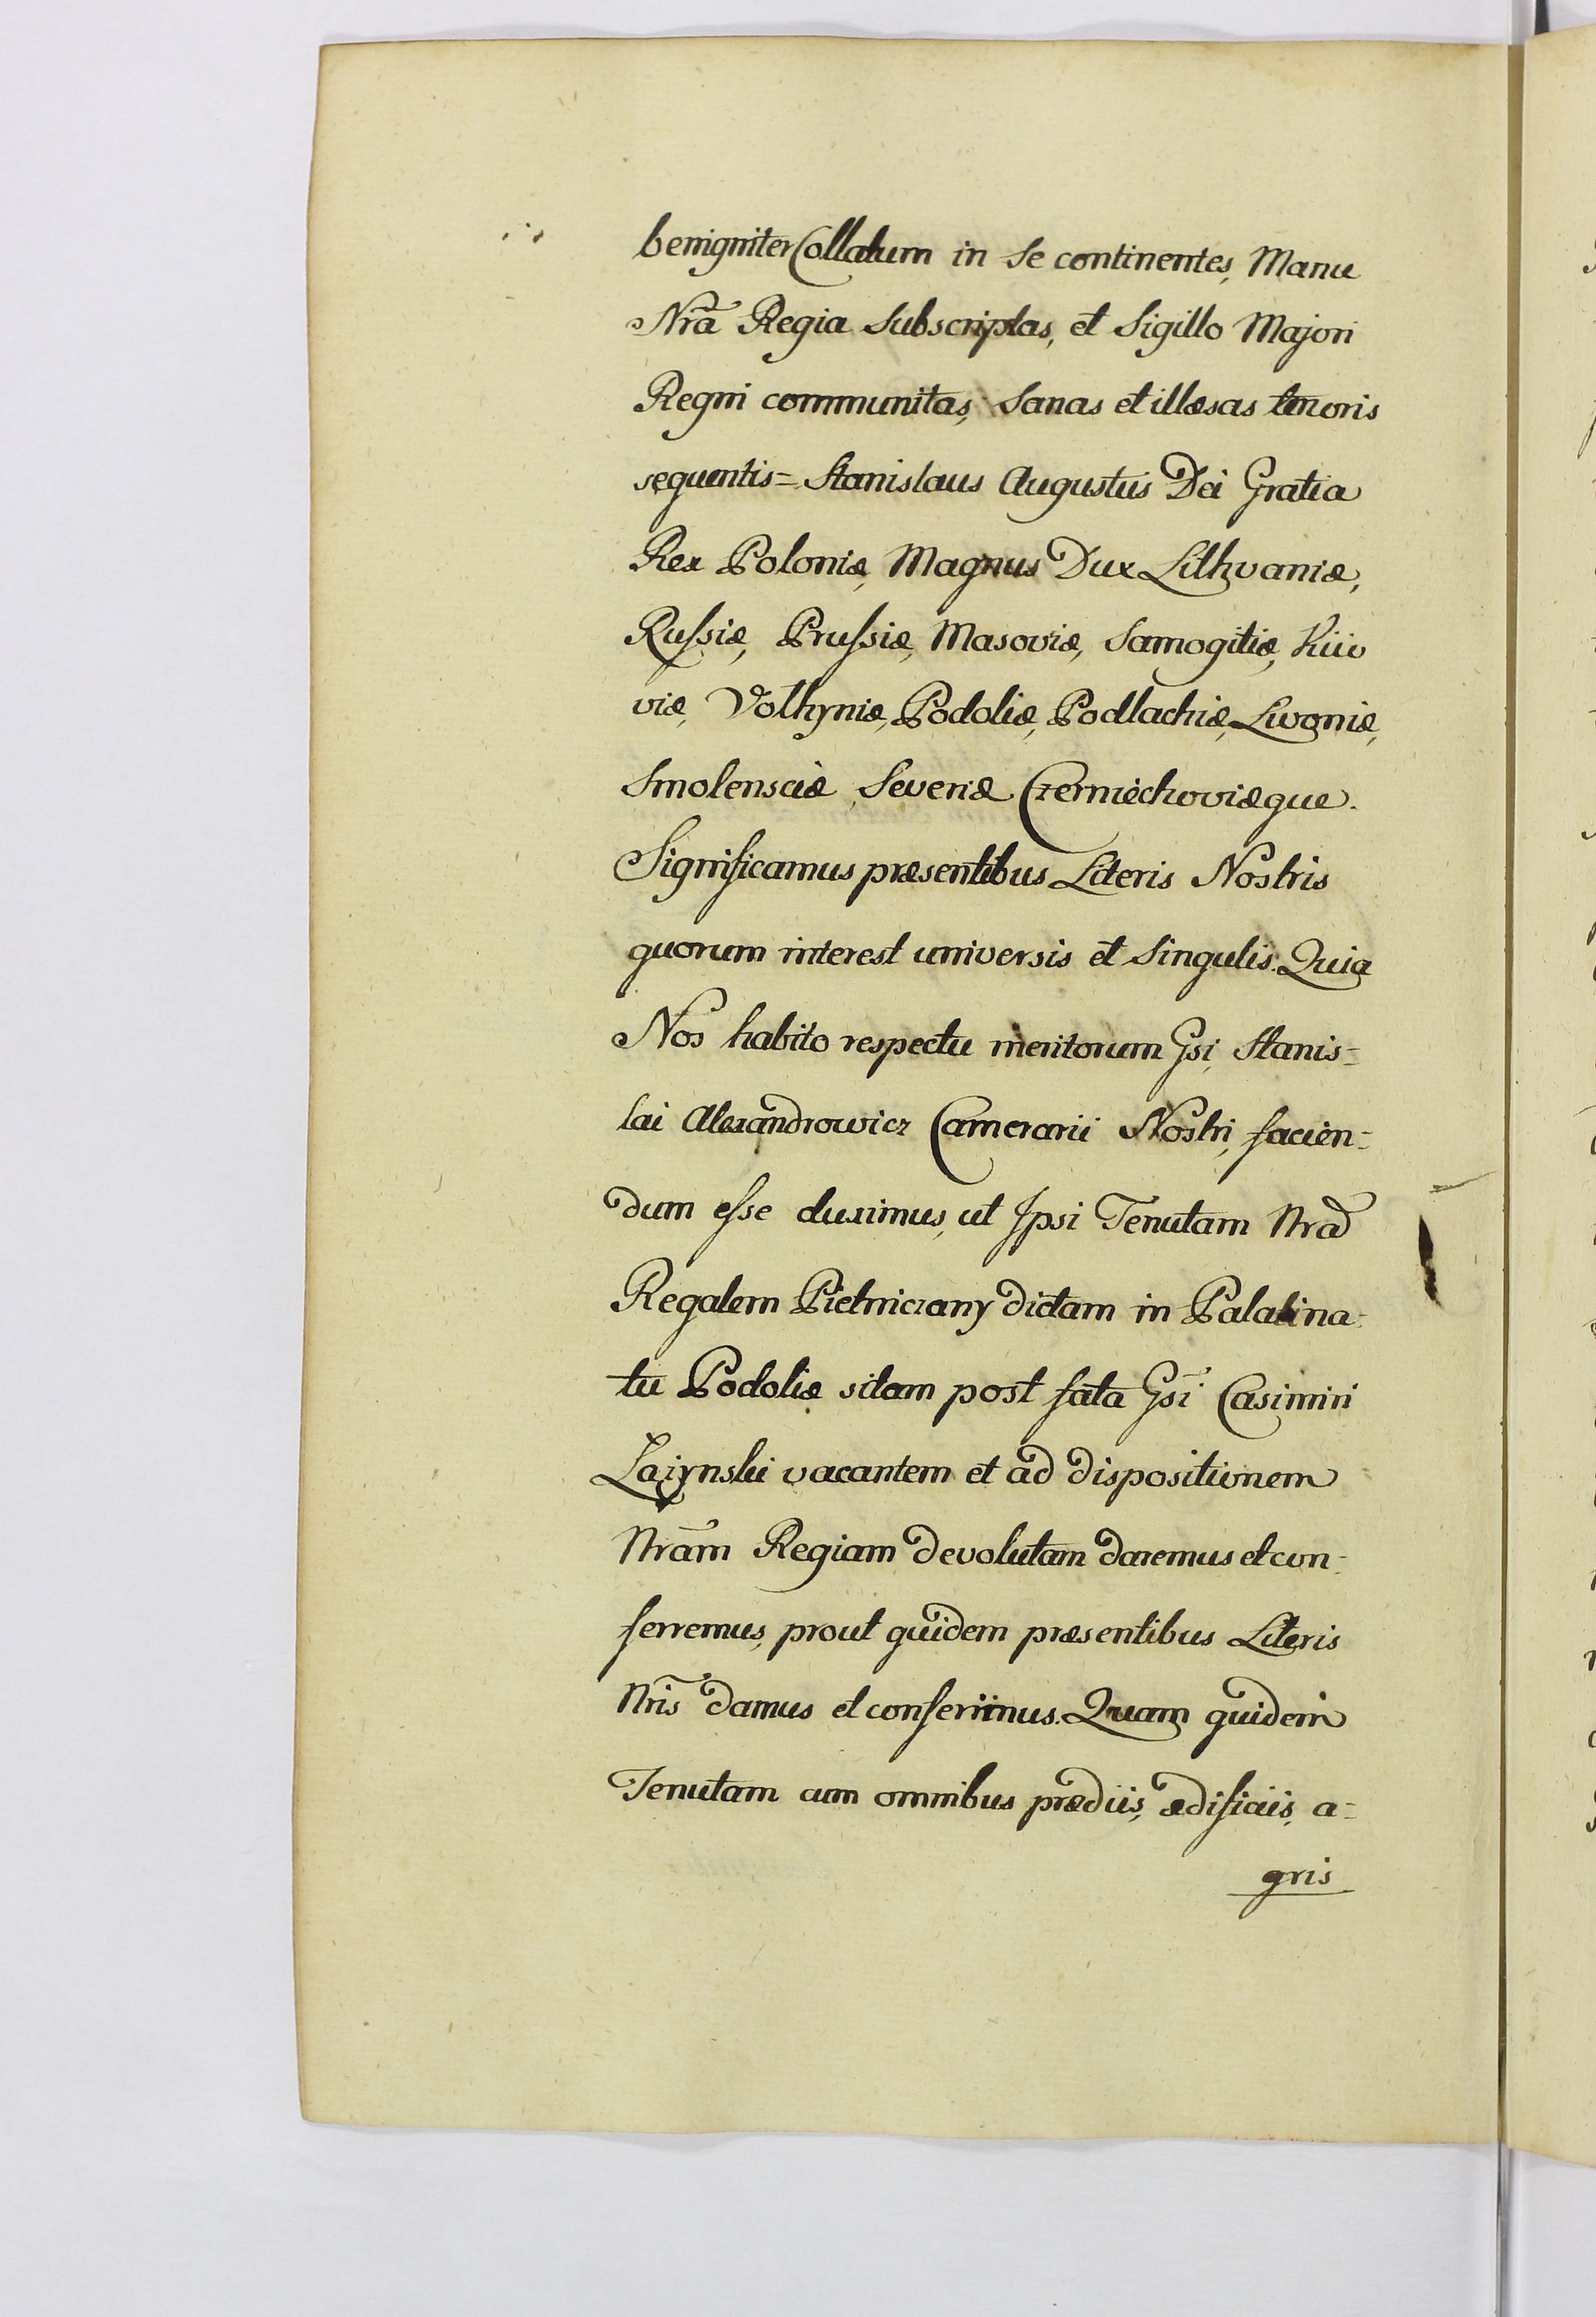 benigniter Collatum in se continentes, Manu
Nrã Regia Subscriptas, et Sigillo Majori
Regni communitas, Sanas et illæsas tenoris
sequentis = Stanislaus Augustus Dei Gratia
Rex Poloniæ, Magnus Dux Lithvaniæ,
Russiæ, Prussiæ, Masoviæ, Samogitiæ, Kiio
viæ, Volhyniæ, Podoliæ, Podlachiæ, Livoniæ,
Smolensciæ Severiæ Czerniechoviæque.
Significamus præsentibus Literis Nostris
quorum interest universis et Singulis. Quia
Nos habito respectu meritorum Gsi, Stanis=
lai Alexandrowicz Camerarii Nostri, facien=
dum esse duximus, ut Ipsi Tenutam Nrã
Regalem Pietniczany dictam in Palatina=
tu Podoliæ sitam post fata Gsi Casimiri
vacantem et ad dispositionem
Nrãm Regiam devolutam daremus et con=
ferremus, prout quidem præsentibus Literis
Nris damus et conferimus. Quam quidem
Tenutam cum omnibus prædiis, ædificiis, a=
gris